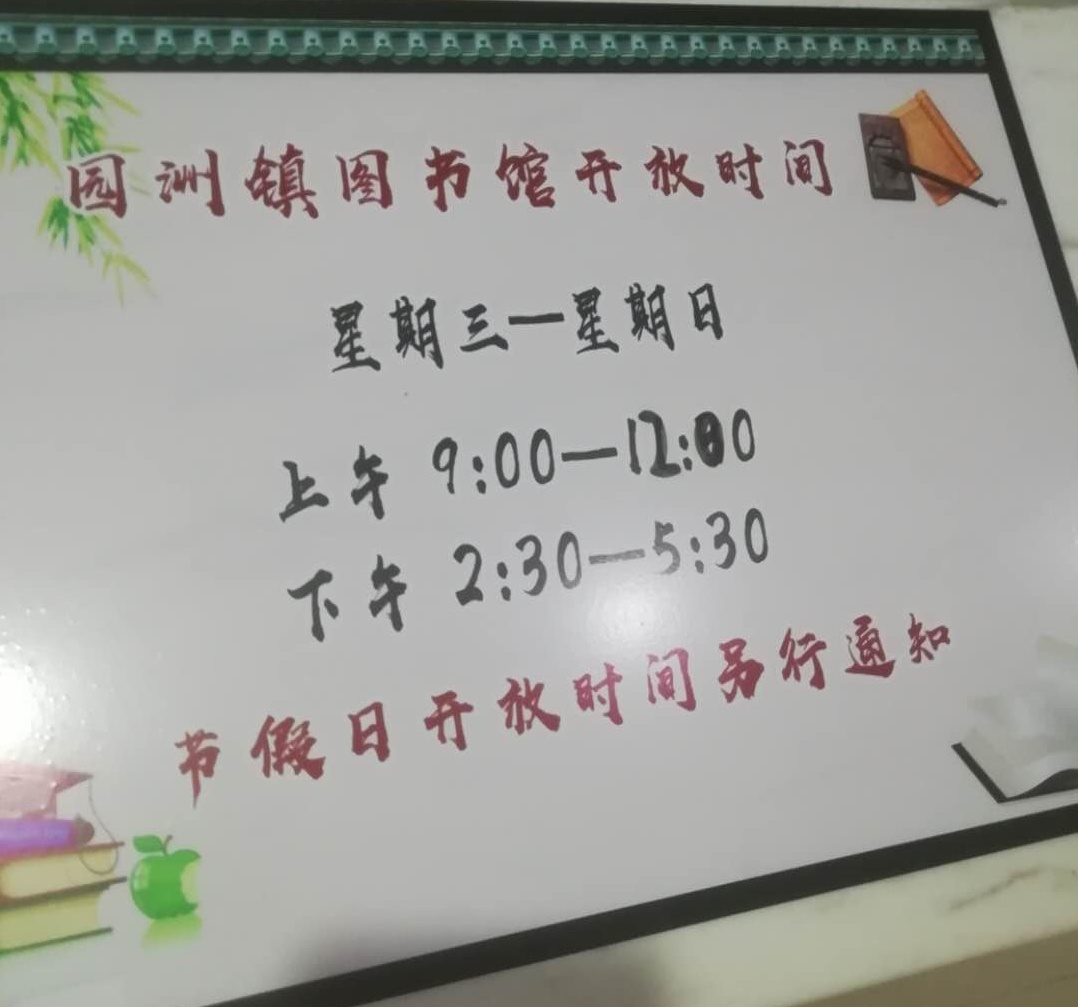 园洲镇图书馆开放时间
星期三—星期日
上午 9:00—12:00
下午 2:30—5:30
节假日开放时间另行通知